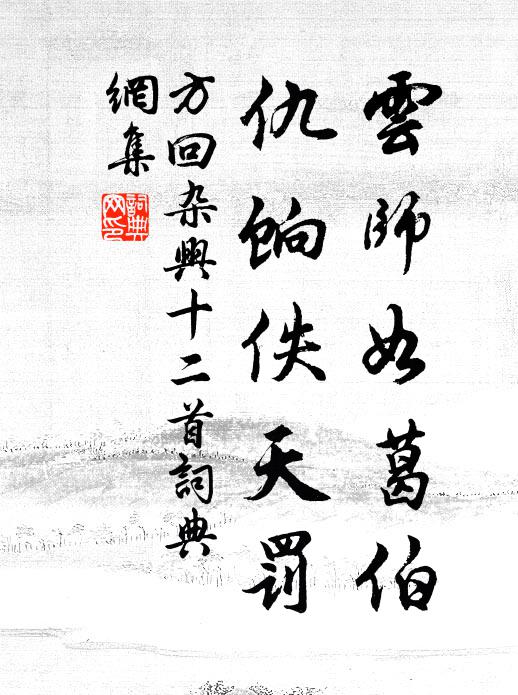 雲師如葛伯
仇餉佚天罰
方回杂興十二首詞典
網集
詞典
网印